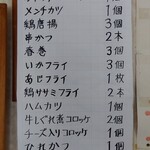 メンチカツ 1個
鶏唐揚 3個
串かつ 2本
春巻 3個
いかフライ 3個
あじフライ 1枚
鶏ササミフライ 2本
ハムカツ 1個
牛しぐれ煮コロッケ 2個
チーズ入りコロッケ 1個
ひれかつ